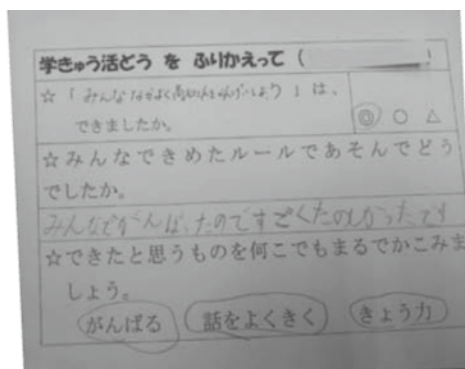 学きゅう活どう を ふりかえって (          )
☆「みんななかよく 」は、
できましたか。
◎ ○ △
☆みんなできめたルールであそんでどう
でしたか。
みんなでがんばったのですごくたのしかったです
☆できたと思うものを何こでもまるでかこみま
しょう。
がんばる 話をよくきく きょう力